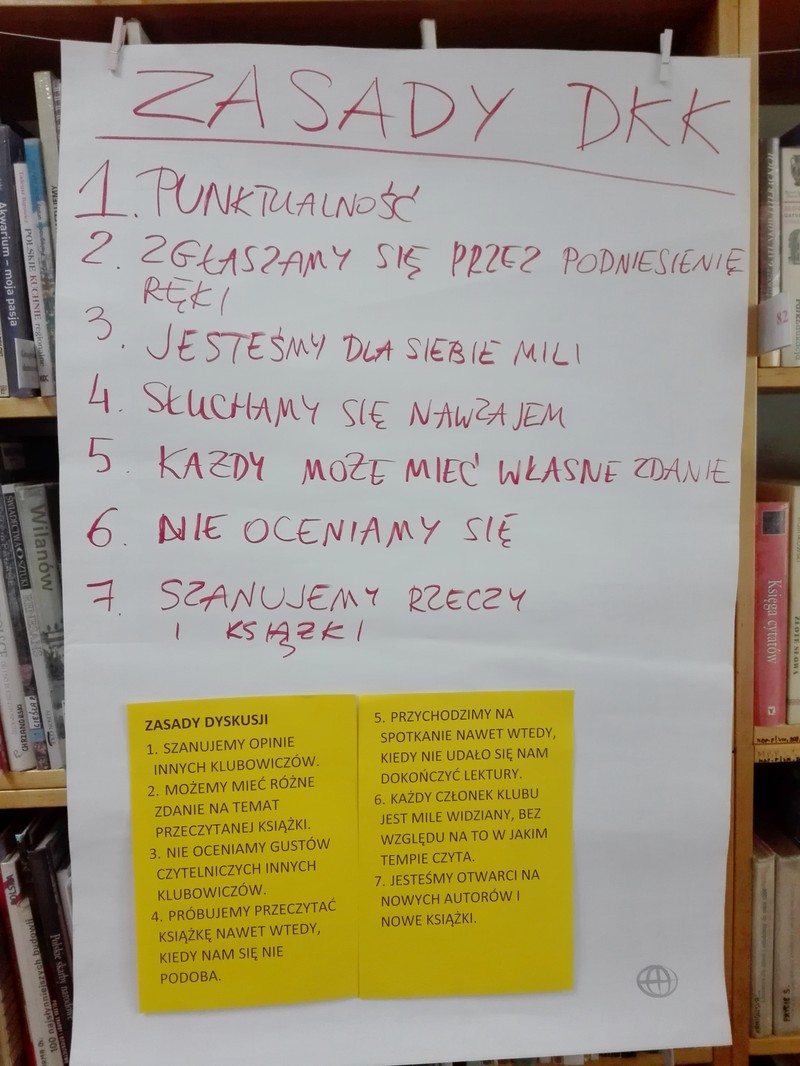 ZASADY DKK
1. PUNKTUALNOŚĆ
2. ZGŁASZAMY SIĘ PRZEZ PODNIESIENIĘ
RĘKI
3. JESTEŚMY DLA SIEBIE MILI
4. SŁUCHAMY SIĘ NAWZAJEM
5. KAŻDY MOŻE MIEĆ WŁASNE ZDANIE
6. NIE OCENIAMY SIĘ
7. SZANUJEMY RZECZY
I KSIĄŻKI
ZASADY DYSKUSJI
1. SZANUJEMY OPINIE
INNYCH KLUBOWICZÓW.
2. MOŻEMY MIEĆ RÓŻNE
ZDANIE NA TEMAT
PRZECZYTANEJ KSIĄŻKI.
3. NIE OCENIAMY GUSTÓW
CZYTELNICZYCH INNYCH
KLUBOWICZÓW.
4. PRÓBUJEMY PRZECZYTAĆ
KSIĄŻKĘ NAWET WTEDY,
KIEDY NAM SIĘ NIE
PODOBA.
5. PRZYCHODZIMY NA
SPOTKANIE NAWET WTEDY,
KIEDY NIE UDAŁO SIĘ NAM
DOKOŃCZYĆ LEKTURY.
6. KAŻDY CZŁONEK KLUBU
JEST MILE WIDZIANY, BEZ
WZGLĘDU NA TO W JAKIM
TEMPIE CZYTA.
7. JESTEŚMY OTWARCI NA
NOWYCH AUTORÓW I
NOWE KSIĄŻKI.
Akwarium – moja pasja
POLSKIE KUCHNIE
Wilanów
100 najsłynniejszych budowli
82
Księga cytatów
ZŁOTE SŁOWA